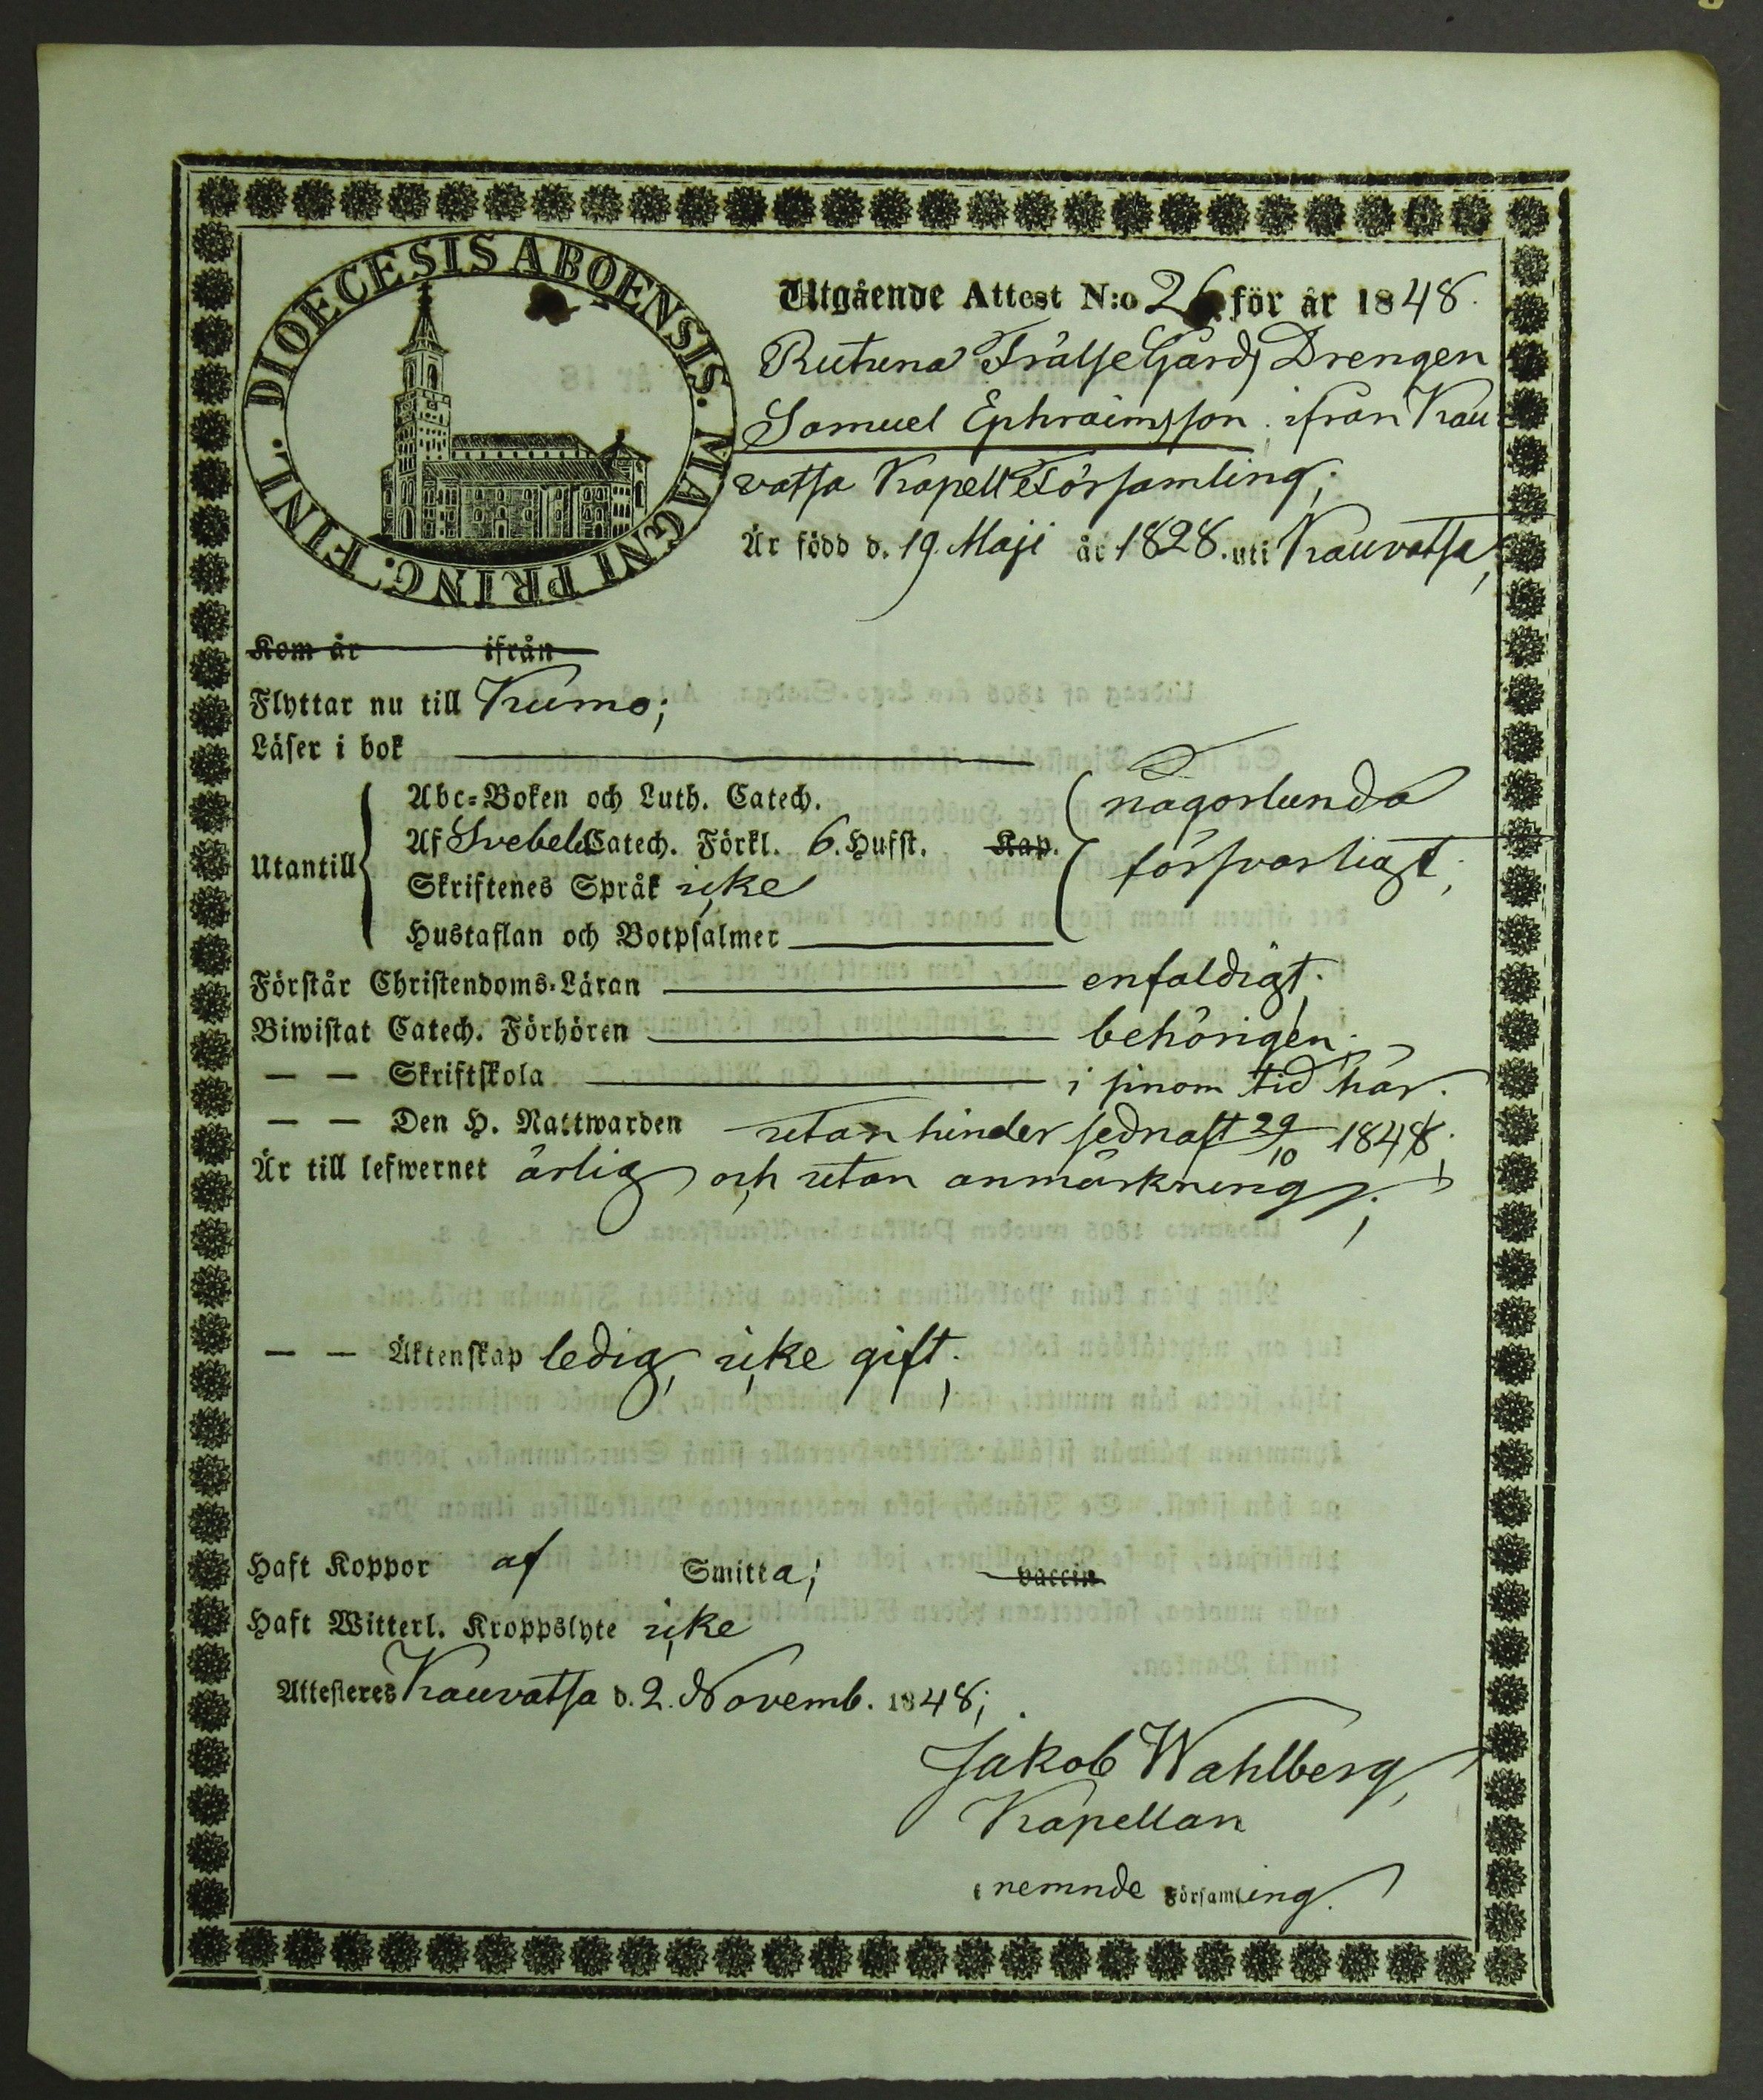 DIOECESIS ABOENSIS. MAGNI PRINC. FINL.
Utgående Attest N:o 26 för år 1848.
Rutuna Frälse Gårds Drengen
Samuel Ephraimsson ifrån Kau
vatsa Kapell Församling;
Är född d. 19 Maji år 1828. uti Kauvatsa;
Kom år ifrån
Flyttar nu till Kumo;
Läser i bok
Abc-Boken och Luth. Catech. någorlunda
Utantill Af Svebelii Catech. Förkl. 6. Hufst. Kap. försvarligt;
Skriftenes Språk icke
Hustaflan och Botpsalmer
Förstår Christendoms-Läran enfaldigt;
Biwistat Catech. Förhören behörigen;
— — Skriftskola i sinom tid här.
— — Den H. Nattwarden utan hinder sednast 29/10 1848;
Är till lefwernet ärlig och utan anmärkning;
— — Äktenskap ledig, icke gift;
Haft Koppor af Smitta; vaccin
Haft Witterl. Kroppslyte icke
Attesteres Kauvatsa d. 2. Novemb. 1848;
Jakob Wahlberg,
Kapellan
i nemnde Församling.